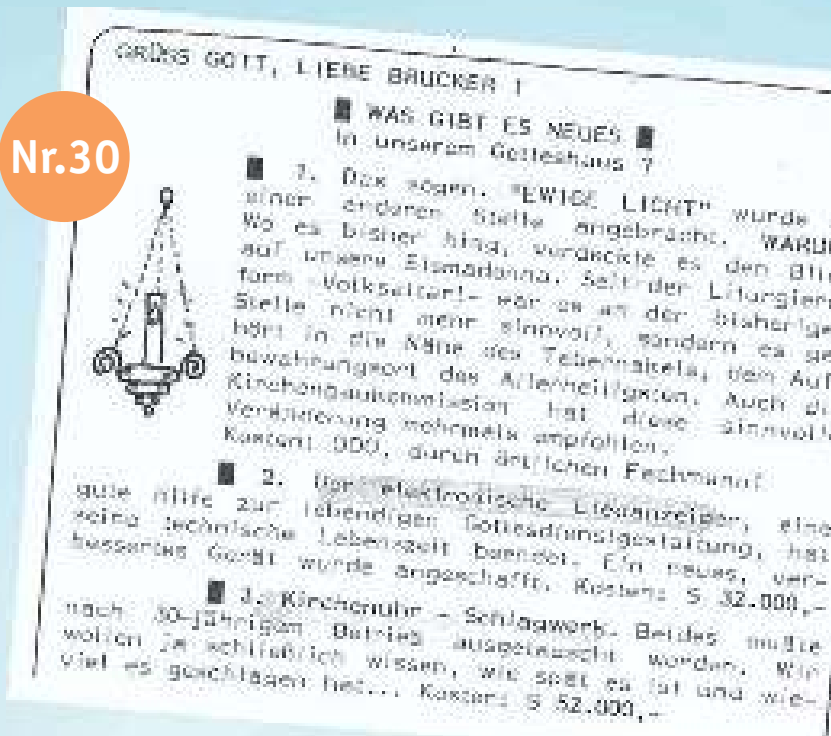 GRÜSS GOTT, LIEBE BRUCKER !
WAS GIBT ES NEUES
In unserem Gotteshaus ?
Nr.30
1. Das sogen. "EWIGE LICHT" wurde
einer anderen Stelle angebracht. WARUM
Wo es bisher hing, verdeckte es den Bli
auf unsere Eismadonna. Seit der Liturgier
form -Volksaltar!- war es an der bisherige
Stelle nicht mehr sinnvoll, sondern es ge
hört in die Nähe des Tabernakels, dem Auf
bewahrungsort des Allerheiligsten. Auch d
Kirchenbaukommission hat diese sinnvoll
Veränderung mehrmals empfohlen.
Kosten: 000, durch örtlichen Fachmann!
2. Der elektronische Liedanzeiger, eine
gute Hilfe zur lebendigen Gottesdienstgestaltung, hat
seine technische Lebenszeit beendet. Ein neues, ver-
bessertes Gerät wurde angeschafft. Kosten: S 32.000,-
3. Kirchenuhr - Schlagwerk. Beides mußte
nach 30-jährigen Betrieb ausgetauscht werden. Wir
wollen ja schließlich wissen, wie spät es ist und wie-
viel es geschlagen hat... Kosten: S 52.000,-